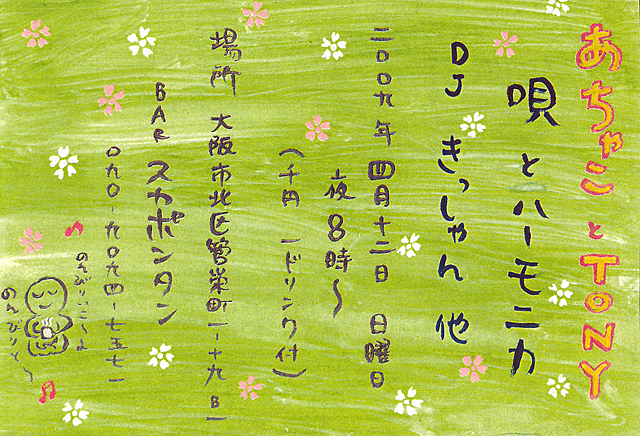 あちゃことTONY
唄とハーモニカ
DJ きっしゃん 他
二〇〇九年 四月十二日 日曜日
夜8時〜
(千円 一ドリンク付)
場所 大阪市北区菅栄町一-十九 B1
BAR スカポンタン
〇九〇-九〇九四-七五七一
のんびりいこ〜よ
のんびりとぅ